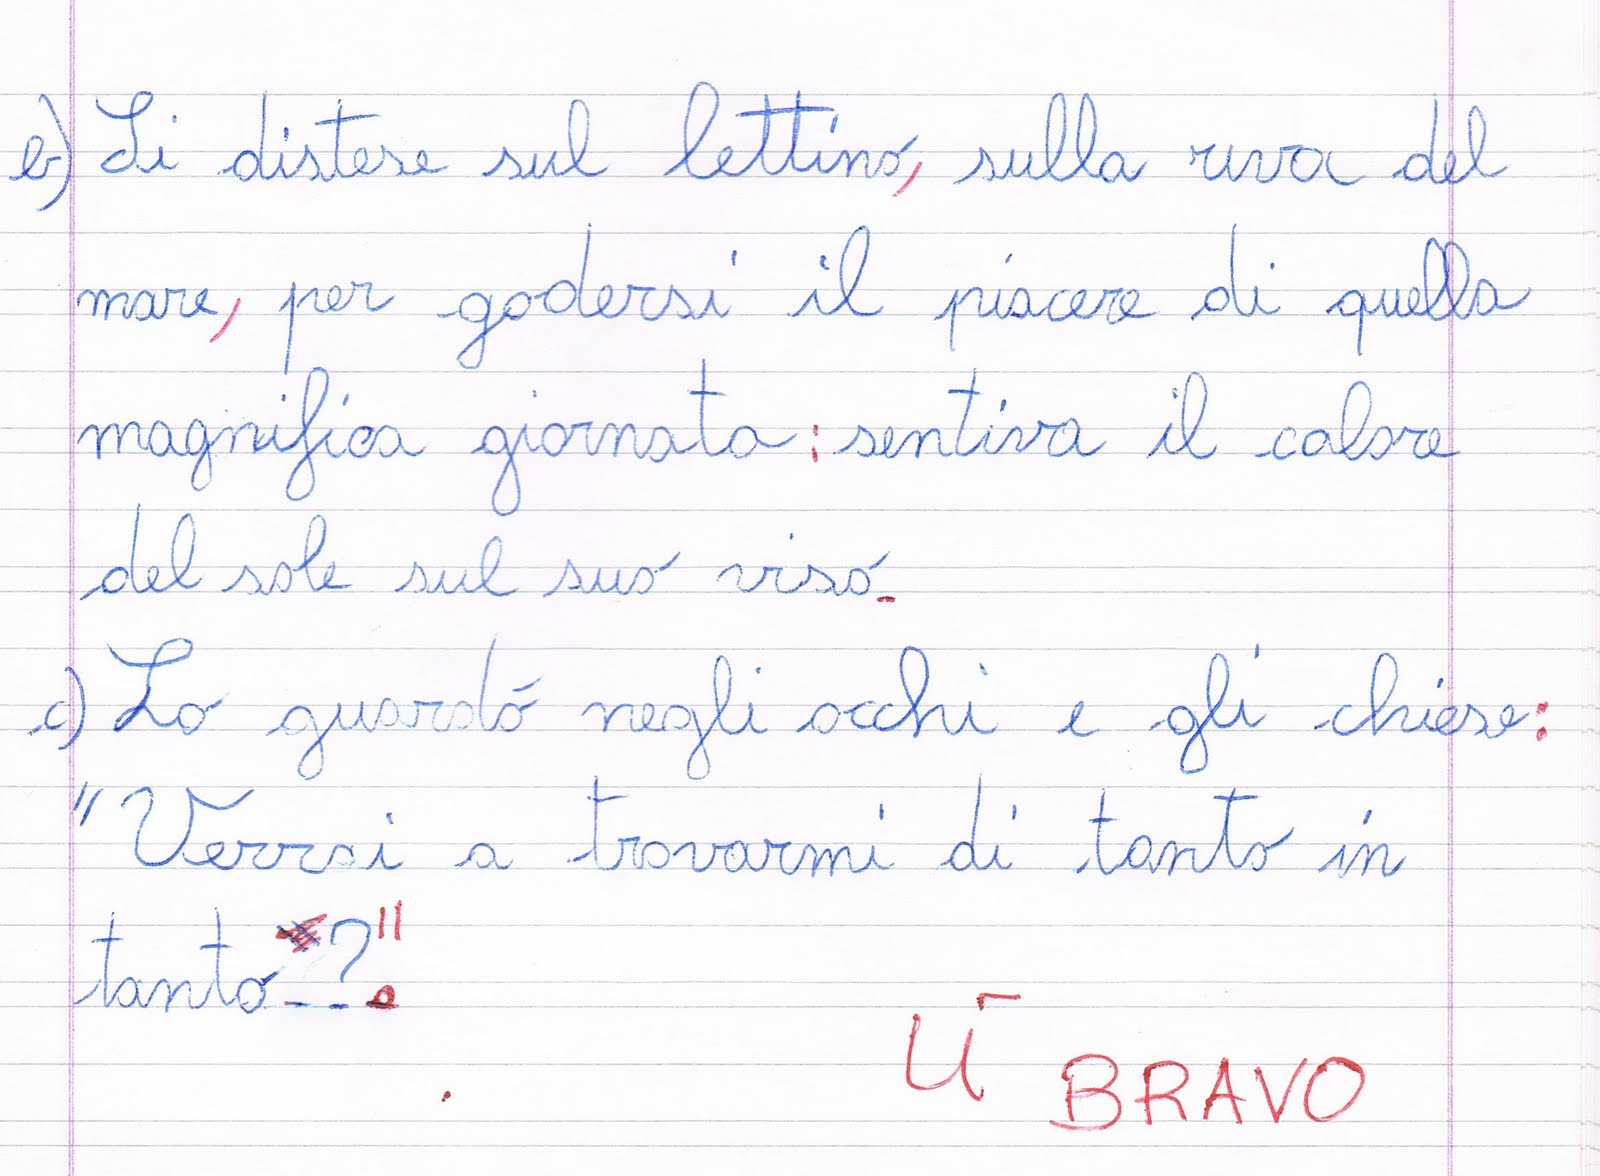 b) Si distese sul lettino, sulla riva del
mare, per godersi il piacere di quella
magnifica giornata: sentiva il calore
del sole sul suo viso.
c) Lo guardò negli occhi e gli chiese:
"Verrai a trovarmi di tanto in
tanto ?".
BRAVO